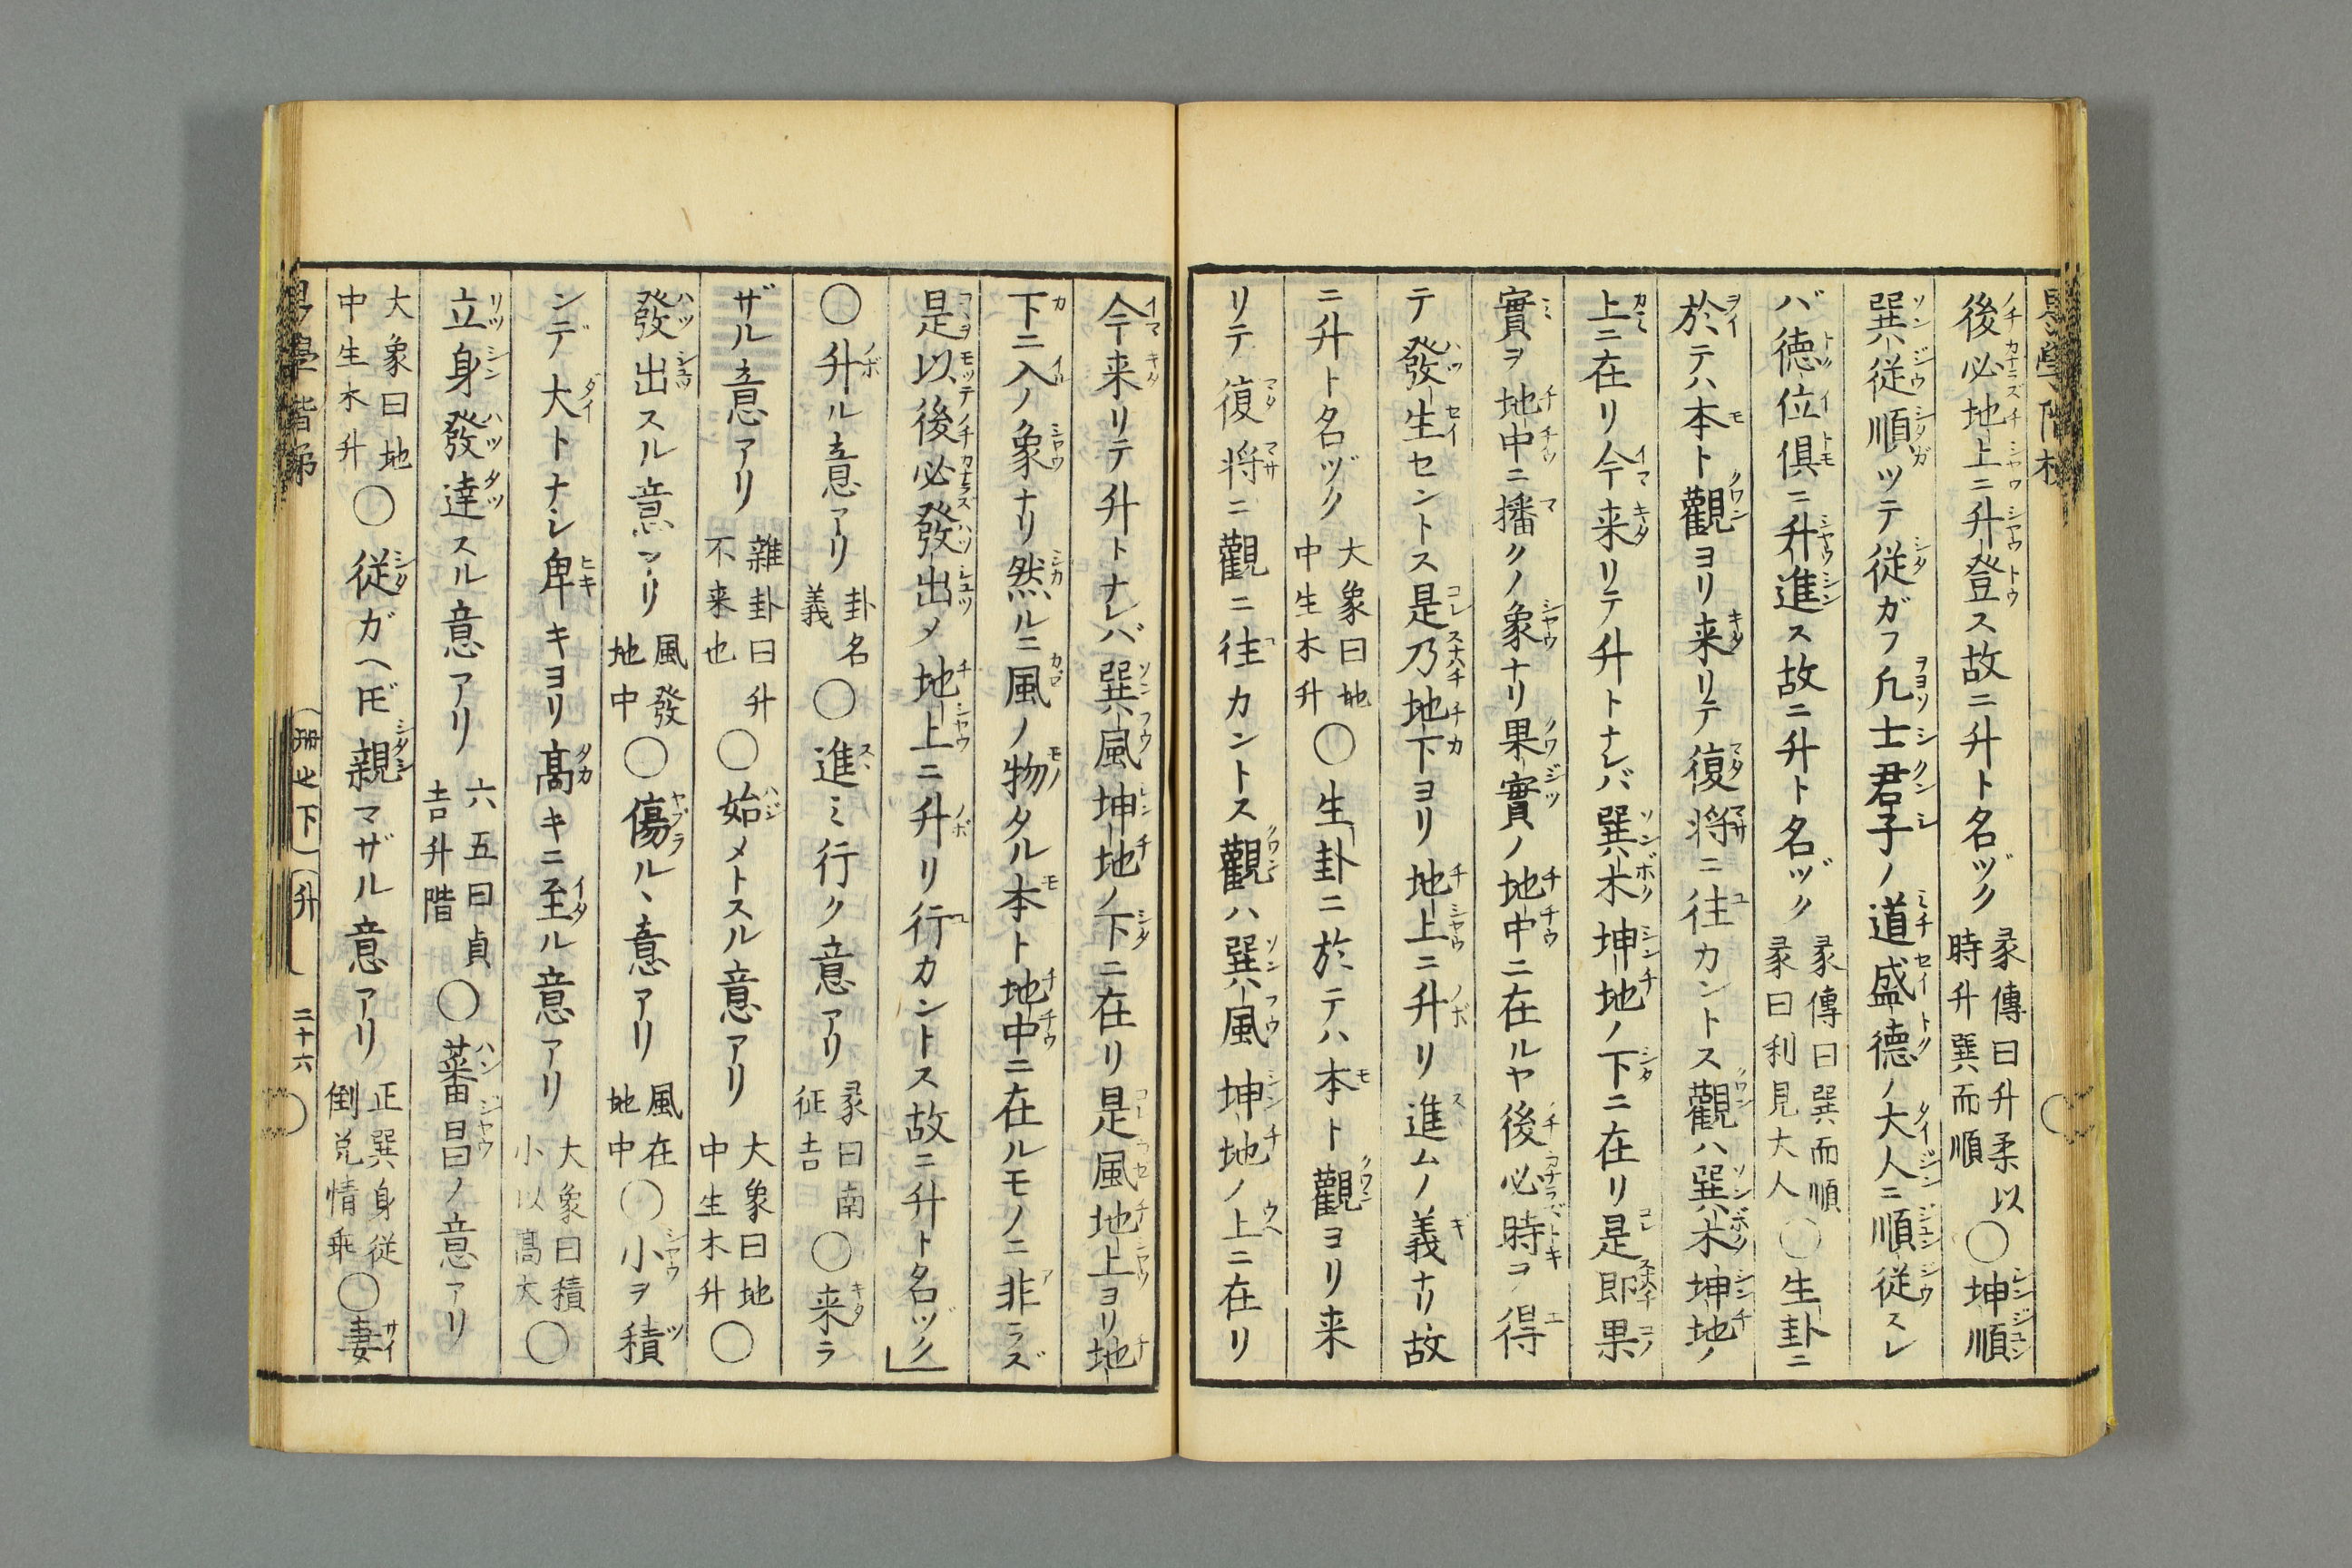 後必地上ニ升登ス故ニ升ト名ヅク 彖傳曰升柔以時升巽而順 ○坤順
巽従順シタガツテ従ガフ凡士君子ノ道盛德ノ大人ニ順従スレ
バ德位倶ニ升進ス故ニ升ト名ヅク 彖傳曰巽而順彖曰利見大人 ○生卦ニ
於テハ本ト觀ヨリ来リテ復将ニ往カントス觀ハ巽木坤地ノ
上ニ在リ今来リテ升トナレバ巽木坤地ノ下ニ在リ是即果
實ヲ地中ニ播クノ象ナリ果實ノ地中ニ在ルヤ後必時ヲ得
テ發生セントス是乃地下ヨリ地上ニ升リ進ムノ義ナリ故
ニ升ト名ヅク 大象曰地中生木升 ○生卦ニ於テハ本ト觀ヨリ来
リテ復将ニ觀ニ往カントス觀ハ巽風坤地ノ上ニ在リ
今来リテ升トナレバ巽風坤地ノ下ニ在リ是風地上ヨリ地
下ニ入ノ象ナリ然ルニ風ノ物タル本ト地中ニ在ルモノニ非ラズ
是以後必發出メ地上ニ升リ行カントス故ニ升ト名ヅク」
○升ル意アリ 卦名義 ○進ミ行ク意アリ 彖曰南征吉 ○来ラ
ザル意アリ 雜卦曰升不来也 ○始メトスル意アリ 大象曰地中生木升 ○
發出スル意アリ 風發地中 ○傷ルヽ意アリ 風在地中 ○小ヲ積
ンデ大トナシ卑キヨリ髙キニ至ル意アリ 大象曰積小以髙大 ○
立身發達スル意アリ 六五曰貞吉升階 ○蕃昌ノ意アリ
大象曰地中生木升 ○従ガヘ𪜈親マザル意アリ 正巽身従倒兌情乖 ○妻
冊之下 升 二十六